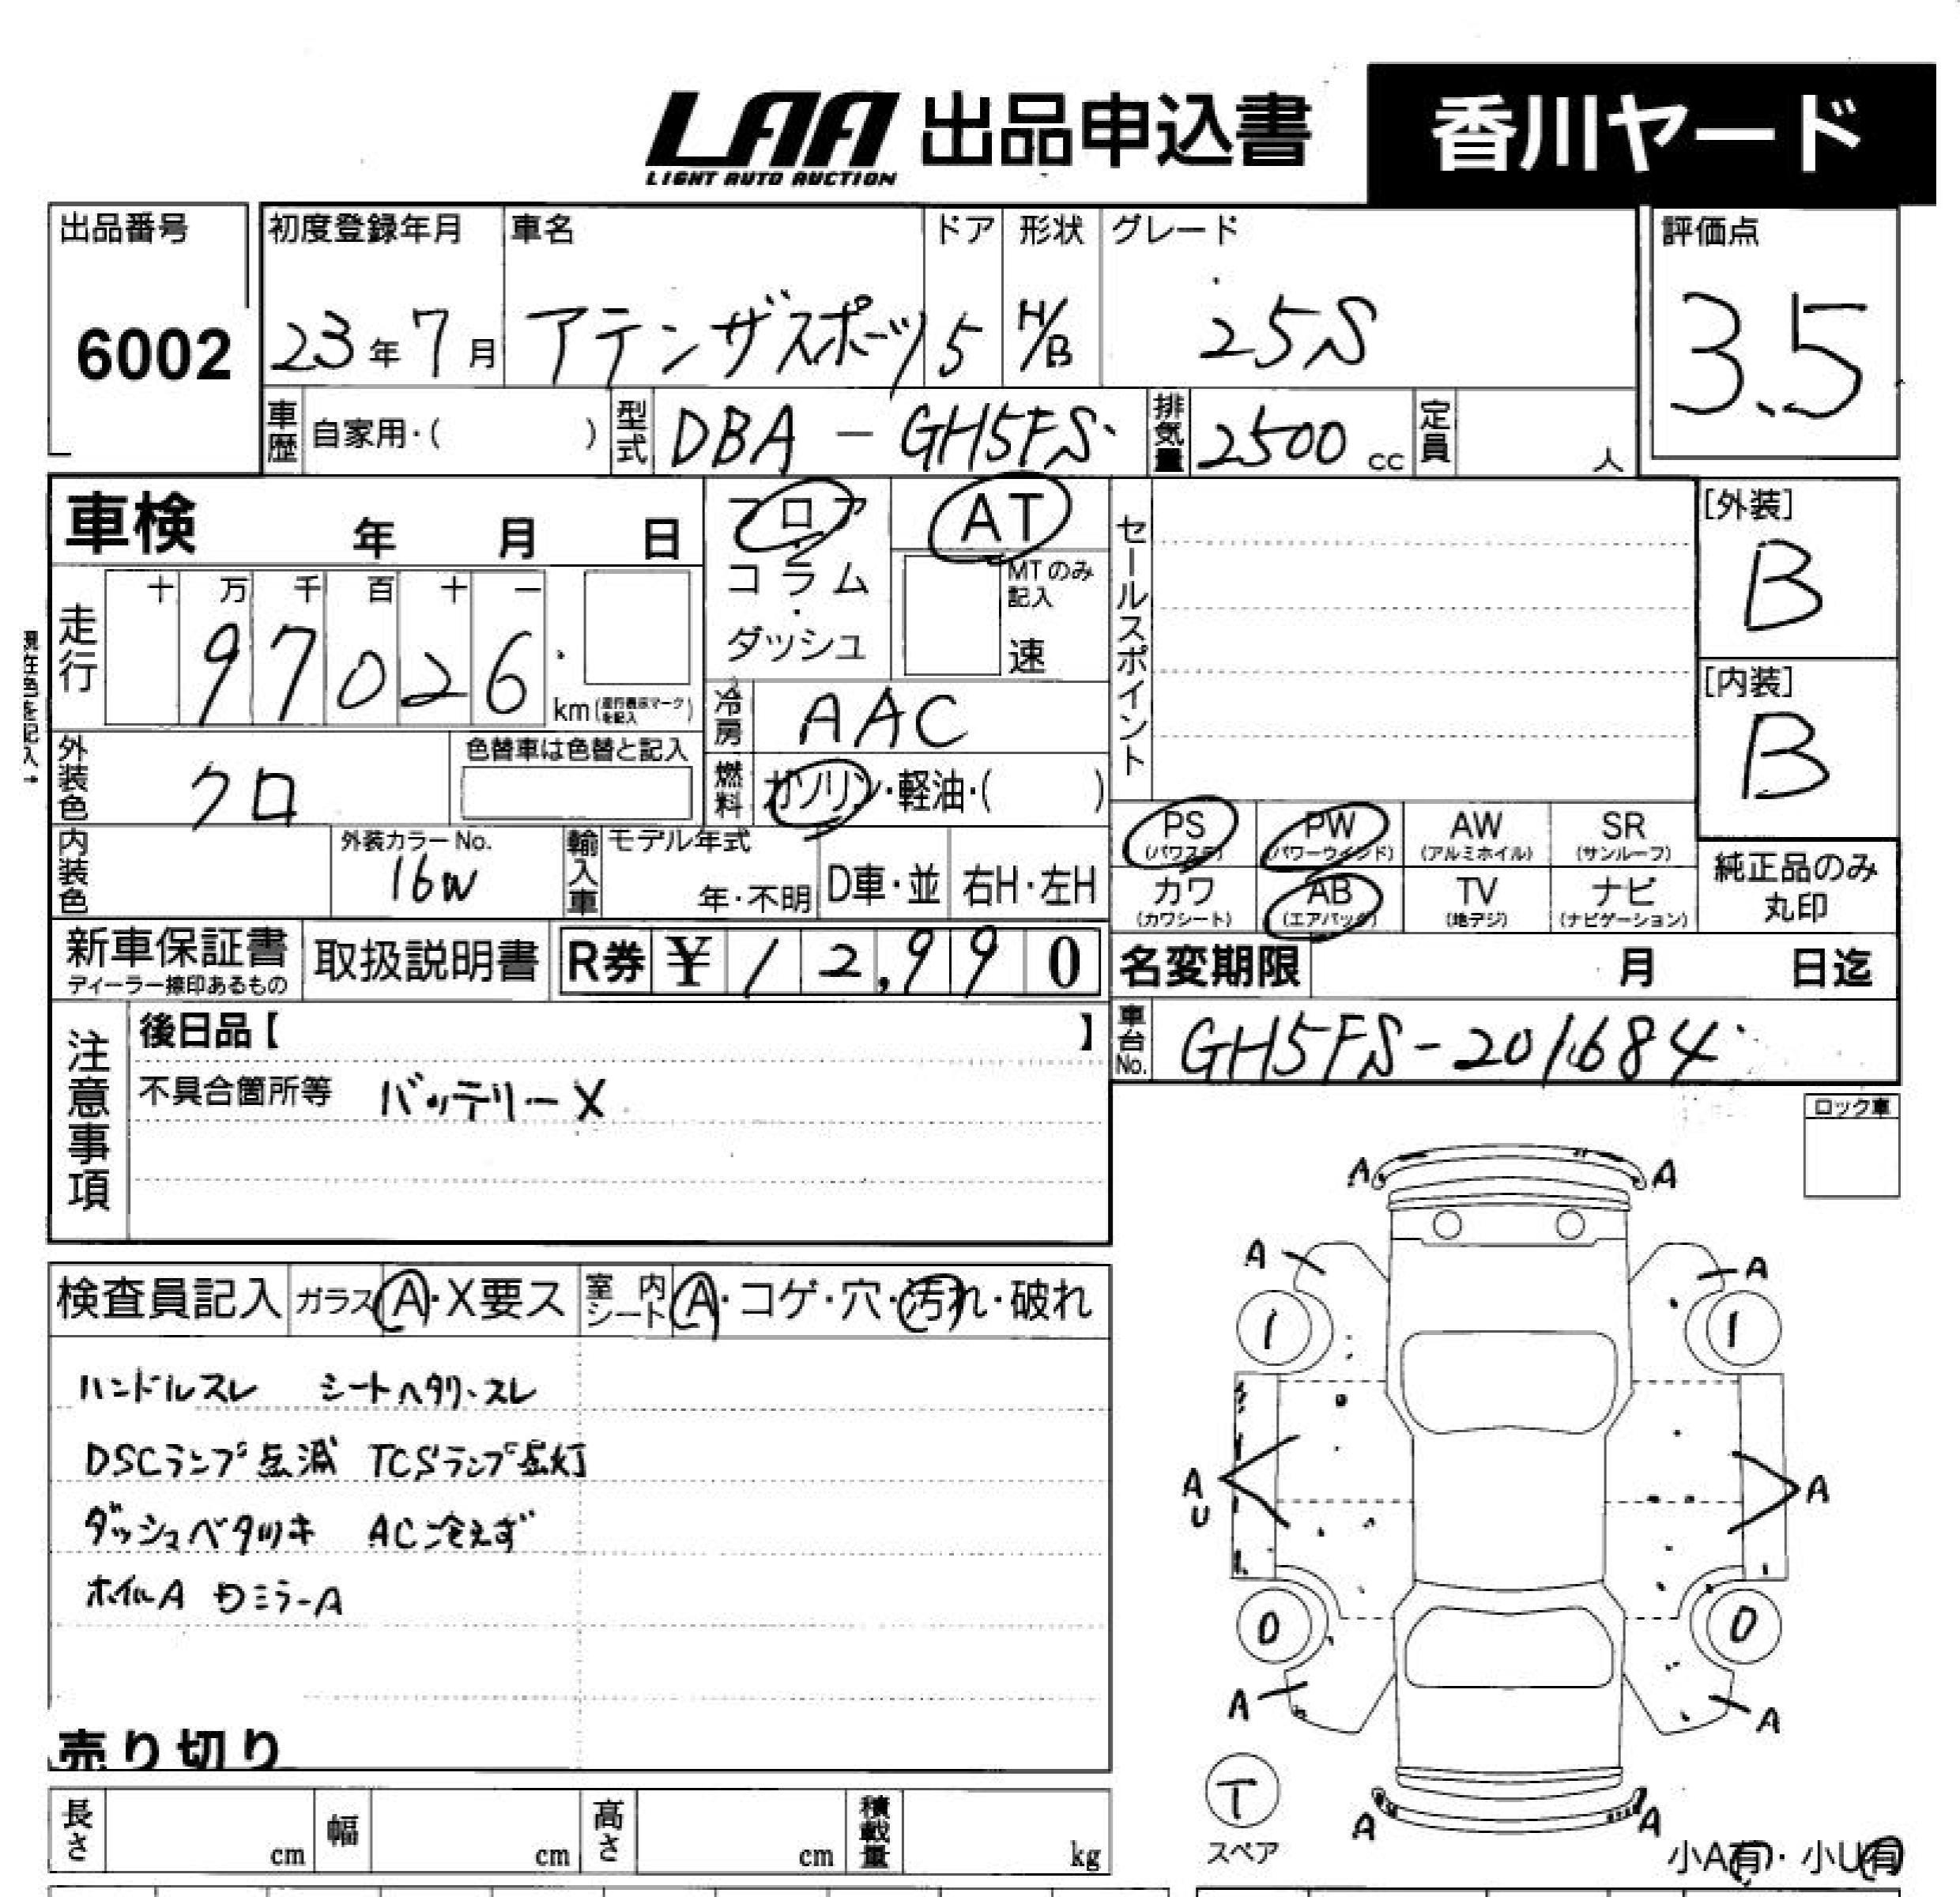 LAA 出品申込書 香川ヤード
LIGHT AUTO AUCTION
出品番号 初度登録年月 車名 ドア 形状 グレード 評価点
6002 23年7月 アテンザスポーツ 5 H/B 25S 3.5
車歴 自家用・( ) 型式 DBA - GH5FS 排気量 2500 cc 定員 人
車検 年 月 日 フロア・コラム・ダッシュ AT セールスポイント [外装]
B
MTのみ記入 速
現在色を記入→
走行 十 万 千 百 十 一
97026 km (走行表示マークを記入)
[内装]
B
冷房 AAC
外装色 クロ 色替車は色替と記入 燃料 ガソリン・軽油・( )
PS (パワステ) PW (パワーウインド) AW (アルミホイル) SR (サンルーフ)
カワ (カワシート) AB (エアバック) TV (地デジ) ナビ (ナビゲーション)
純正品のみ
丸印
内装色 外装カラーNo. 16W 輸入車 モデル年式 年・不明 D車・並 右H・左H
新車保証書 取扱説明書 R券 ¥ 12,990 名変期限 月 日迄
ディーラー捺印あるもの
注意事項 後日品【 】 車台No. GH5FS-201684
不具合箇所等 バッテリーX
ロック車
検査員記入 ガラス A・X要ス 室内シート A・コゲ・穴・汚れ・破れ
ハンドルスレ シートヘタリ・スレ
DSCランプ点滅 TCSランプ点灯
ダッシュベタツキ AC冷えず
ホイルA ミラーA
売り切り
A A
A A
1 1
A U A
0 0
A A
T
スペア
A A
小A有・小U有
長さ cm 幅 cm 高さ cm 積載量 kg